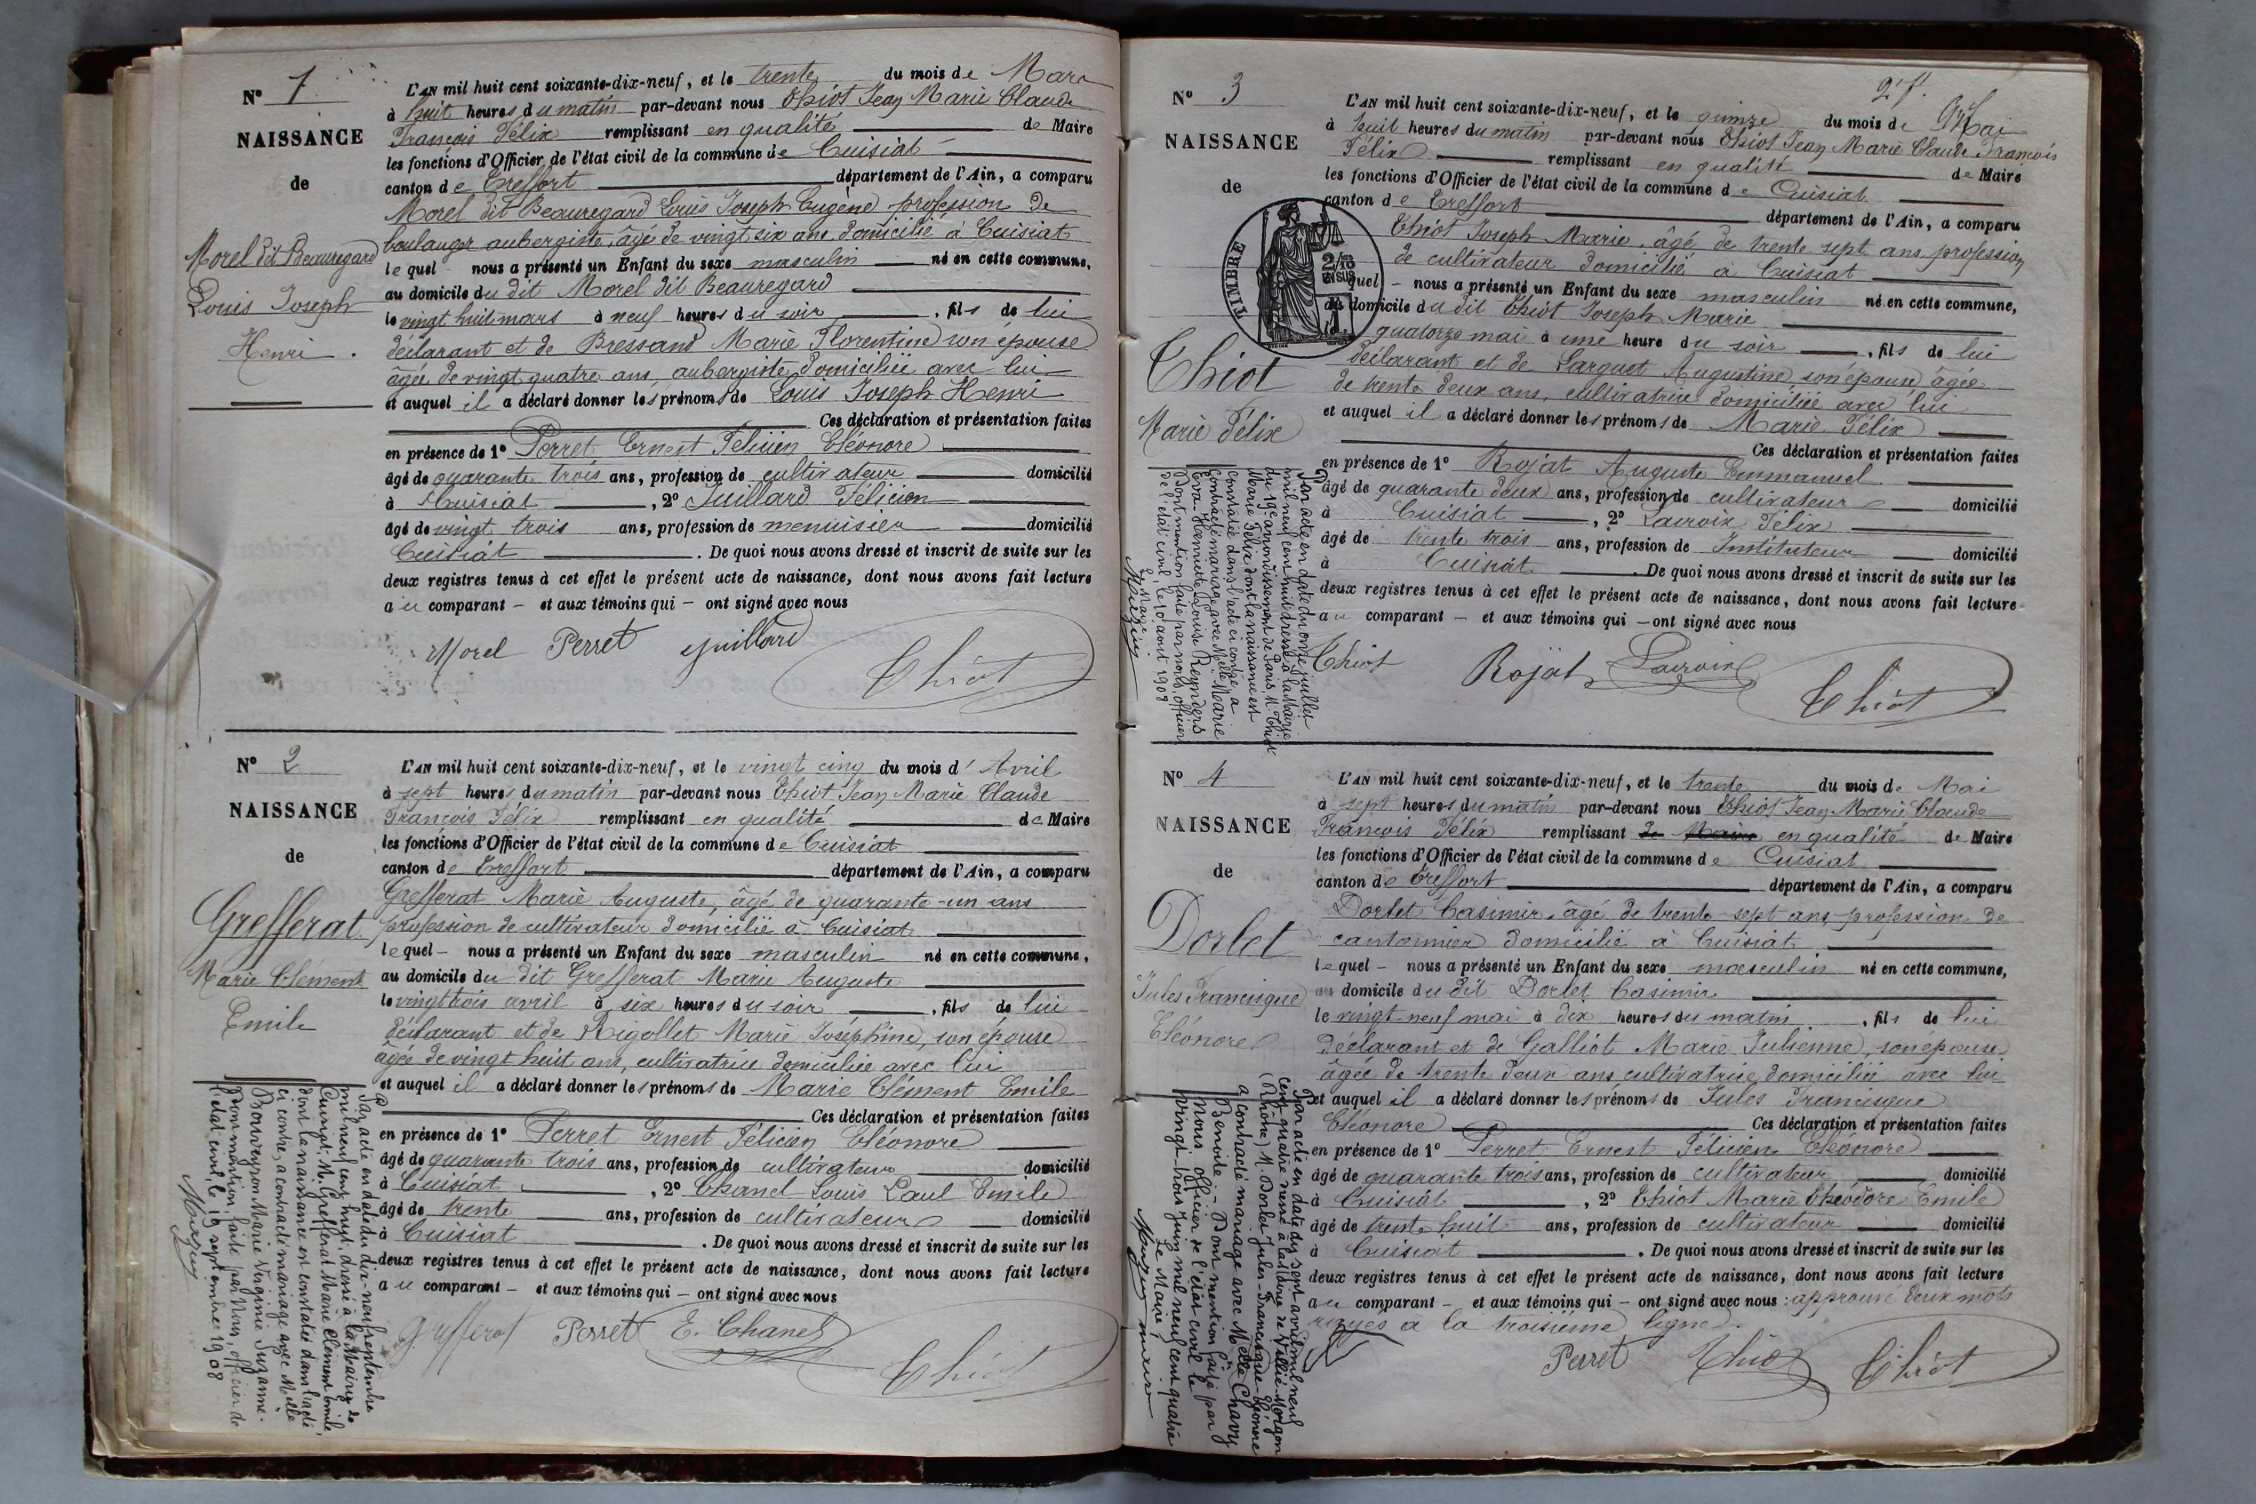 N° 1
NAISSANCE
de
Morel dit Beauregard
Louis Joseph
Henri.
L'AN mil huit cent soixante-dix-neuf, et le trente du mois de Mars
à huit heures du matin par-devant nous Thiot Jean Marie Claude
François Félix remplissant en qualité de Maire
les fonctions d'Officier de l'état civil de la commune de Cuisiat
canton de Treffort département de l'Ain, a comparu
Morel dit Beauregard Louis Joseph Eugène profession de
boulanger aubergiste, âgé de vingt six ans domicilié à Cuisiat
lequel nous a présenté un Enfant du sexe masculin né en cette commune,
au domicile du dit Morel dit Beauregard
le vingt huit mars à neuf heures du soir, fils de lui
déclarant et de Bressand Marie Florentine son épouse
âgée de vingt quatre ans, aubergiste domiciliée avec lui
et auquel il a déclaré donner les prénoms de Louis Joseph Henri
Ces déclaration et présentation faites
en présence de 1° Perret Ernest Félicien Eléonore
âgé de quarante trois ans, profession de cultivateur domicilié
à Cuisiat, 2° Juillard Félicien
âgé de vingt trois ans, profession de menuisier domicilié
Cuisiat. De quoi nous avons dressé et inscrit de suite sur les
deux registres tenus à cet effet le présent acte de naissance, dont nous avons fait lecture
au comparant - et aux témoins qui - ont signé avec nous
Morel Perret Juillard
Thiot
N° 2
NAISSANCE
de
Grefferat
Marie Clément
Emile
L'AN mil huit cent soixante-dix-neuf, et le vingt cinq du mois d'Avril
à sept heures du matin par-devant nous Thiot Jean Marie Claude
François Félix remplissant en qualité de Maire
les fonctions d'Officier de l'état civil de la commune de Cuisiat
canton de Treffort département de l'Ain, a comparu
Grefferat Marie Auguste, âgé de quarante-un ans
profession de cultivateur domicilié à Cuisiat
lequel - nous a présenté un Enfant du sexe masculin né en cette commune,
au domicile du dit Grefferat Marie Auguste
le vingt trois avril à six heures du soir, fils de lui
déclarant et de Rigollet Marie Joséphine, son épouse
âgée de vingt huit ans, cultivatrice domiciliée avec lui
et auquel il a déclaré donner les prénoms de Marie Clément Emile
Ces déclaration et présentation faites
en présence de 1° Perret Ernest Félicien Eléonore
âgé de quarante trois ans, profession de cultivateur domicilié
à Cuisiat, 2° Chanel Louis Paul Emile
âgé de trente ans, profession de cultivateur domicilié
à Cuisiat. De quoi nous avons dressé et inscrit de suite sur les
deux registres tenus à cet effet le présent acte de naissance, dont nous avons fait lecture
au comparant - et aux témoins qui - ont signé avec nous
Grefferat Perret E. Chanel
Thiot
Par acte en date du dix-neuf septembre
mil neuf cent huit, dressé à la Mairie de
M. Grefferat Marie Clément Emile,
dont la naissance est constatée dans l'acte
ci contre, a contracté mariage avec Melle
Marie Virginie Suzanne.
Dont mention faite par Nous, officier de
l'état civil, le 19 septembre 1908
N° 3
NAISSANCE
de
Thiot
Marie Félix
2e f.
L'AN mil huit cent soixante-dix-neuf, et le quinze du mois de Mai
à huit heures du matin par-devant nous Thiot Jean Marie Claude François
Félix remplissant en qualité de Maire
les fonctions d'Officier de l'état civil de la commune de Cuisiat
canton de Treffort département de l'Ain, a comparu
Thiot Joseph Marie, âgé de trente sept ans profession
de cultivateur domicilié à Cuisiat
TIMBRE
2/10
EN SUS
quel - nous a présenté un Enfant du sexe masculin né en cette commune,
au domicile du dit Thiot Joseph Marie
quatorze mai à une heure du soir, fils de lui
déclarant et de Larguet Augustine, son épouse, âgée
de trente deux ans, cultivatrice domiciliée avec lui
et auquel il a déclaré donner les prénoms de Marie Félix
Ces déclaration et présentation faites
en présence de 1° Rojat Auguste Emmanuel
âgé de quarante deux ans, profession de cultivateur domicilié
à Cuisiat, 2° Lacroix Félix
âgé de trente trois ans, profession de Instituteur domicilié
à Cuisiat. De quoi nous avons dressé et inscrit de suite sur les
deux registres tenus à cet effet le présent acte de naissance, dont nous avons fait lecture
au comparant - et aux témoins qui - ont signé avec nous
Thiot Rojat Lacroix
Thiot
Par acte en date du onze juillet
mil neuf cent huit dressé à la Mairie
du 19e arrondissement de Paris, M. Thiot
Marie Félix dont la naissance est
constatée dans l'acte ci contre, a
contracté mariage avec Melle Marie
Eva Henriette Louise Reynders
Dont mention faite par nous, officier
de l'état civil, le 10 aout 1908
Le Maire
N° 4
NAISSANCE
de
Dorlet
Jules Francisque
Eléonore
L'AN mil huit cent soixante-dix-neuf, et le trente du mois de Mai
à sept heures du matin par-devant nous Thiot Jean Marie Claude
François Félix remplissant de Maire en qualité de Maire
les fonctions d'Officier de l'état civil de la commune de Cuisiat
canton de Treffort département de l'Ain, a comparu
Dorlet Casimir, âgé de trente-sept ans, profession de
cantonnier domicilié à Cuisiat
lequel - nous a présenté un Enfant du sexe masculin né en cette commune,
au domicile du dit Dorlet Casimir
le vingt neuf mai à dix heures du matin, fils de lui
déclarant et de Galliot Marie Julienne, son épouse,
âgée de trente deux ans cultivatrice domiciliée avec lui
et auquel il a déclaré donner les prénoms de Jules Francisque
Eléonore Ces déclaration et présentation faites
en présence de 1° Perret Ernest Félicien Eléonore
âgé de quarante trois ans, profession de cultivateur domicilié
à Cuisiat, 2° Thiot Marie Théodore Emile
âgé de trente huit ans, profession de cultivateur domicilié
à Cuisiat. De quoi nous avons dressé et inscrit de suite sur les
deux registres tenus à cet effet le présent acte de naissance, dont nous avons fait lecture
au comparant - et aux témoins qui - ont signé avec nous : approuvé deux mots
rayés à la troisième ligne.
Perret Thiot Thiot
Par acte en date du sept avril mil neuf
cent quatre dressé à la Mairie de Villié-Morgon
(Rhône) M. Dorlet Jules Francisque Eléonore
a contracté mariage avec Melle Chavy
Benoite. - Dont mention faite par
Nous, officier de l'état civil le
vingt-trois juin mil neuf cent quatre
Le Maire,